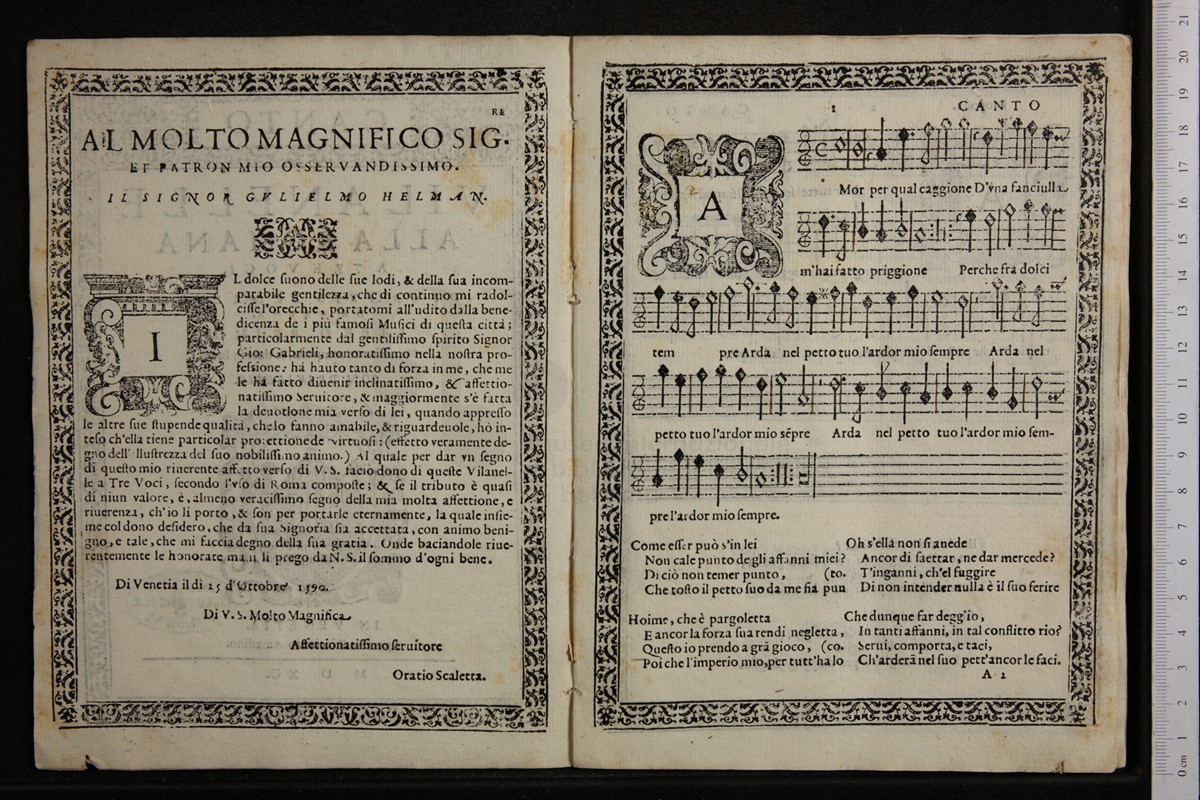 RE
AL MOLTO MAGNIFICO SIG.
ET PATRON MIO OSSERVANDISSIMO.
IL SIGNOR GVLIELMO HELMAN.
IL dolce ſuono delle ſue lodi, & della ſua incom-
parabile gentilezza, che di continuo mi radol-
ciſſe l'orecchie, portatomi all'udito dalla bene-
dicenza de i più famoſi Muſici di queſta città;
particolarmente dal gentiliſſimo ſpirito Signor
Gio: Gabrieli, honoratiſſimo nella noſtra pro-
feſsione: hà hauto tanto di forza in me, che me
le hà fatto diuenir inclinatiſſimo, & affettio-
natiſſimo Seruitore, & maggiormente s'è fatta
la deuotione mia verſo di lei, quando appreſſo
le altre ſue ſtupende qualità, che lo fanno amabile, & riguardeuole, hò in-
teſo ch'ella tiene particolar protettione de virtuoſi: (effetto veramente de-
gno dell' Iluſtrezza del ſuo nobiliſſimo animo.) Al quale per dar vn ſegno
di queſto mio riuerente affetto verſo di V. S. facio dono di queſte Vilanel-
le a Tre Voci, ſecondo l'vſo di Roma compoſte; & ſe il tributo è quaſi
di niun valore, è, almeno veraciſſimo ſegno della mia molta affettione, e
riuerenza, ch'io li porto, & ſon per portarle eternamente, la quale inſie-
me col dono deſidero, che da ſua Signoria ſia accettata, con animo beni-
gno, e tale, che mi faccia degno della ſua gratia. Onde baciandole riue-
rentemente le honorate mani li prego da N. S. il ſommo d'ogni bene.
Di Venetia il dì 15 d'Ottobre 1590.
Di V. S. Molto Magnifica
Affettionatiſſimo ſeruitore
Oratio Scaletta.
1 CANTO
A
Mor per qual caggione D'vna fanciulla
m'hai fatto priggione Perche fra dolci
tem pre Arda nel petto tuo l'ardor mio ſempre Arda nel
petto tuo l'ardor mio sẽpre Arda nel petto tuo l'ardor mio ſem-
pre l'ardor mio ſempre.
Come eſſer può s'in lei
Non cale punto degli affanni miei?
Di ciò non temer punto, (to.
Che toſto il petto ſuo da me fia pun
Hoime, che è pargoletta
E ancor la forza ſua rendi negletta,
Queſto io prendo a grã gioco, (co.
Poi che l'imperio mio, per tutt'ha lo
Oh s'ella non ſi auede
Ancor di ſaettar, ne dar mercede?
T'inganni, ch'el fuggire
Di non intender nulla è il ſuo ferire
Che dunque far degg'io,
In tanti affanni, in tal conflitto rio?
Serui, comporta, e taci,
Ch'arderà nel ſuo pett'ancor le faci.
A 2